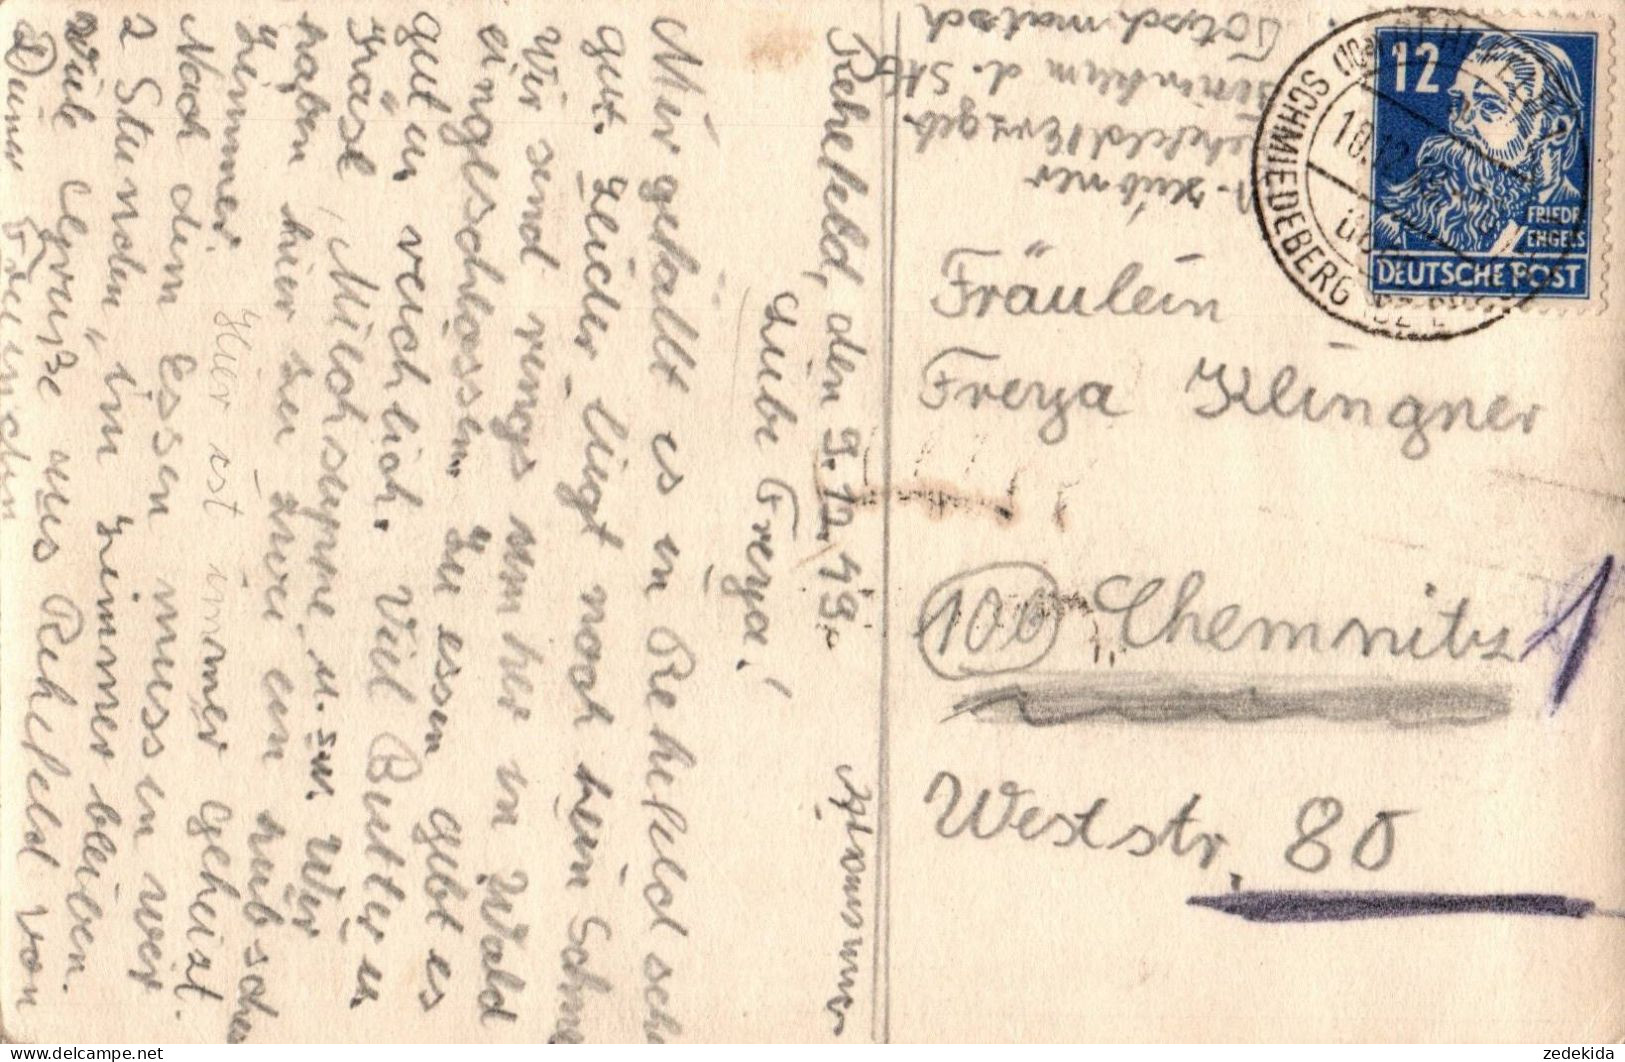 Rehefeld, den 9.12.49.
Liebe Freya!
Mir gefällt es in Rehefeld sehr
gut. Leider liegt noch kein Schnee
Wir sind rings umher in Wald
eingeschlossen. Zu essen gibt es
gut u. reichlich. Viel Butter u
Käse, Milchsuppe u.s.w. Wir
haben hier zu zwei ein hübsches
Zimmer. Hier ist immer geheizt.
Nach dem Essen müssen wir
2 Stunden im Zimmer bleiben.
Viele Grüße aus Rehefeld von
Deiner Freundin
Hübner
Fräulein
Freya Klingner
10b Chemnitz 1
Weststr. 80
12
FRIEDR.
ENGELS
DEUTSCHE POST
SCHMIEDEBERG
über
zedekida